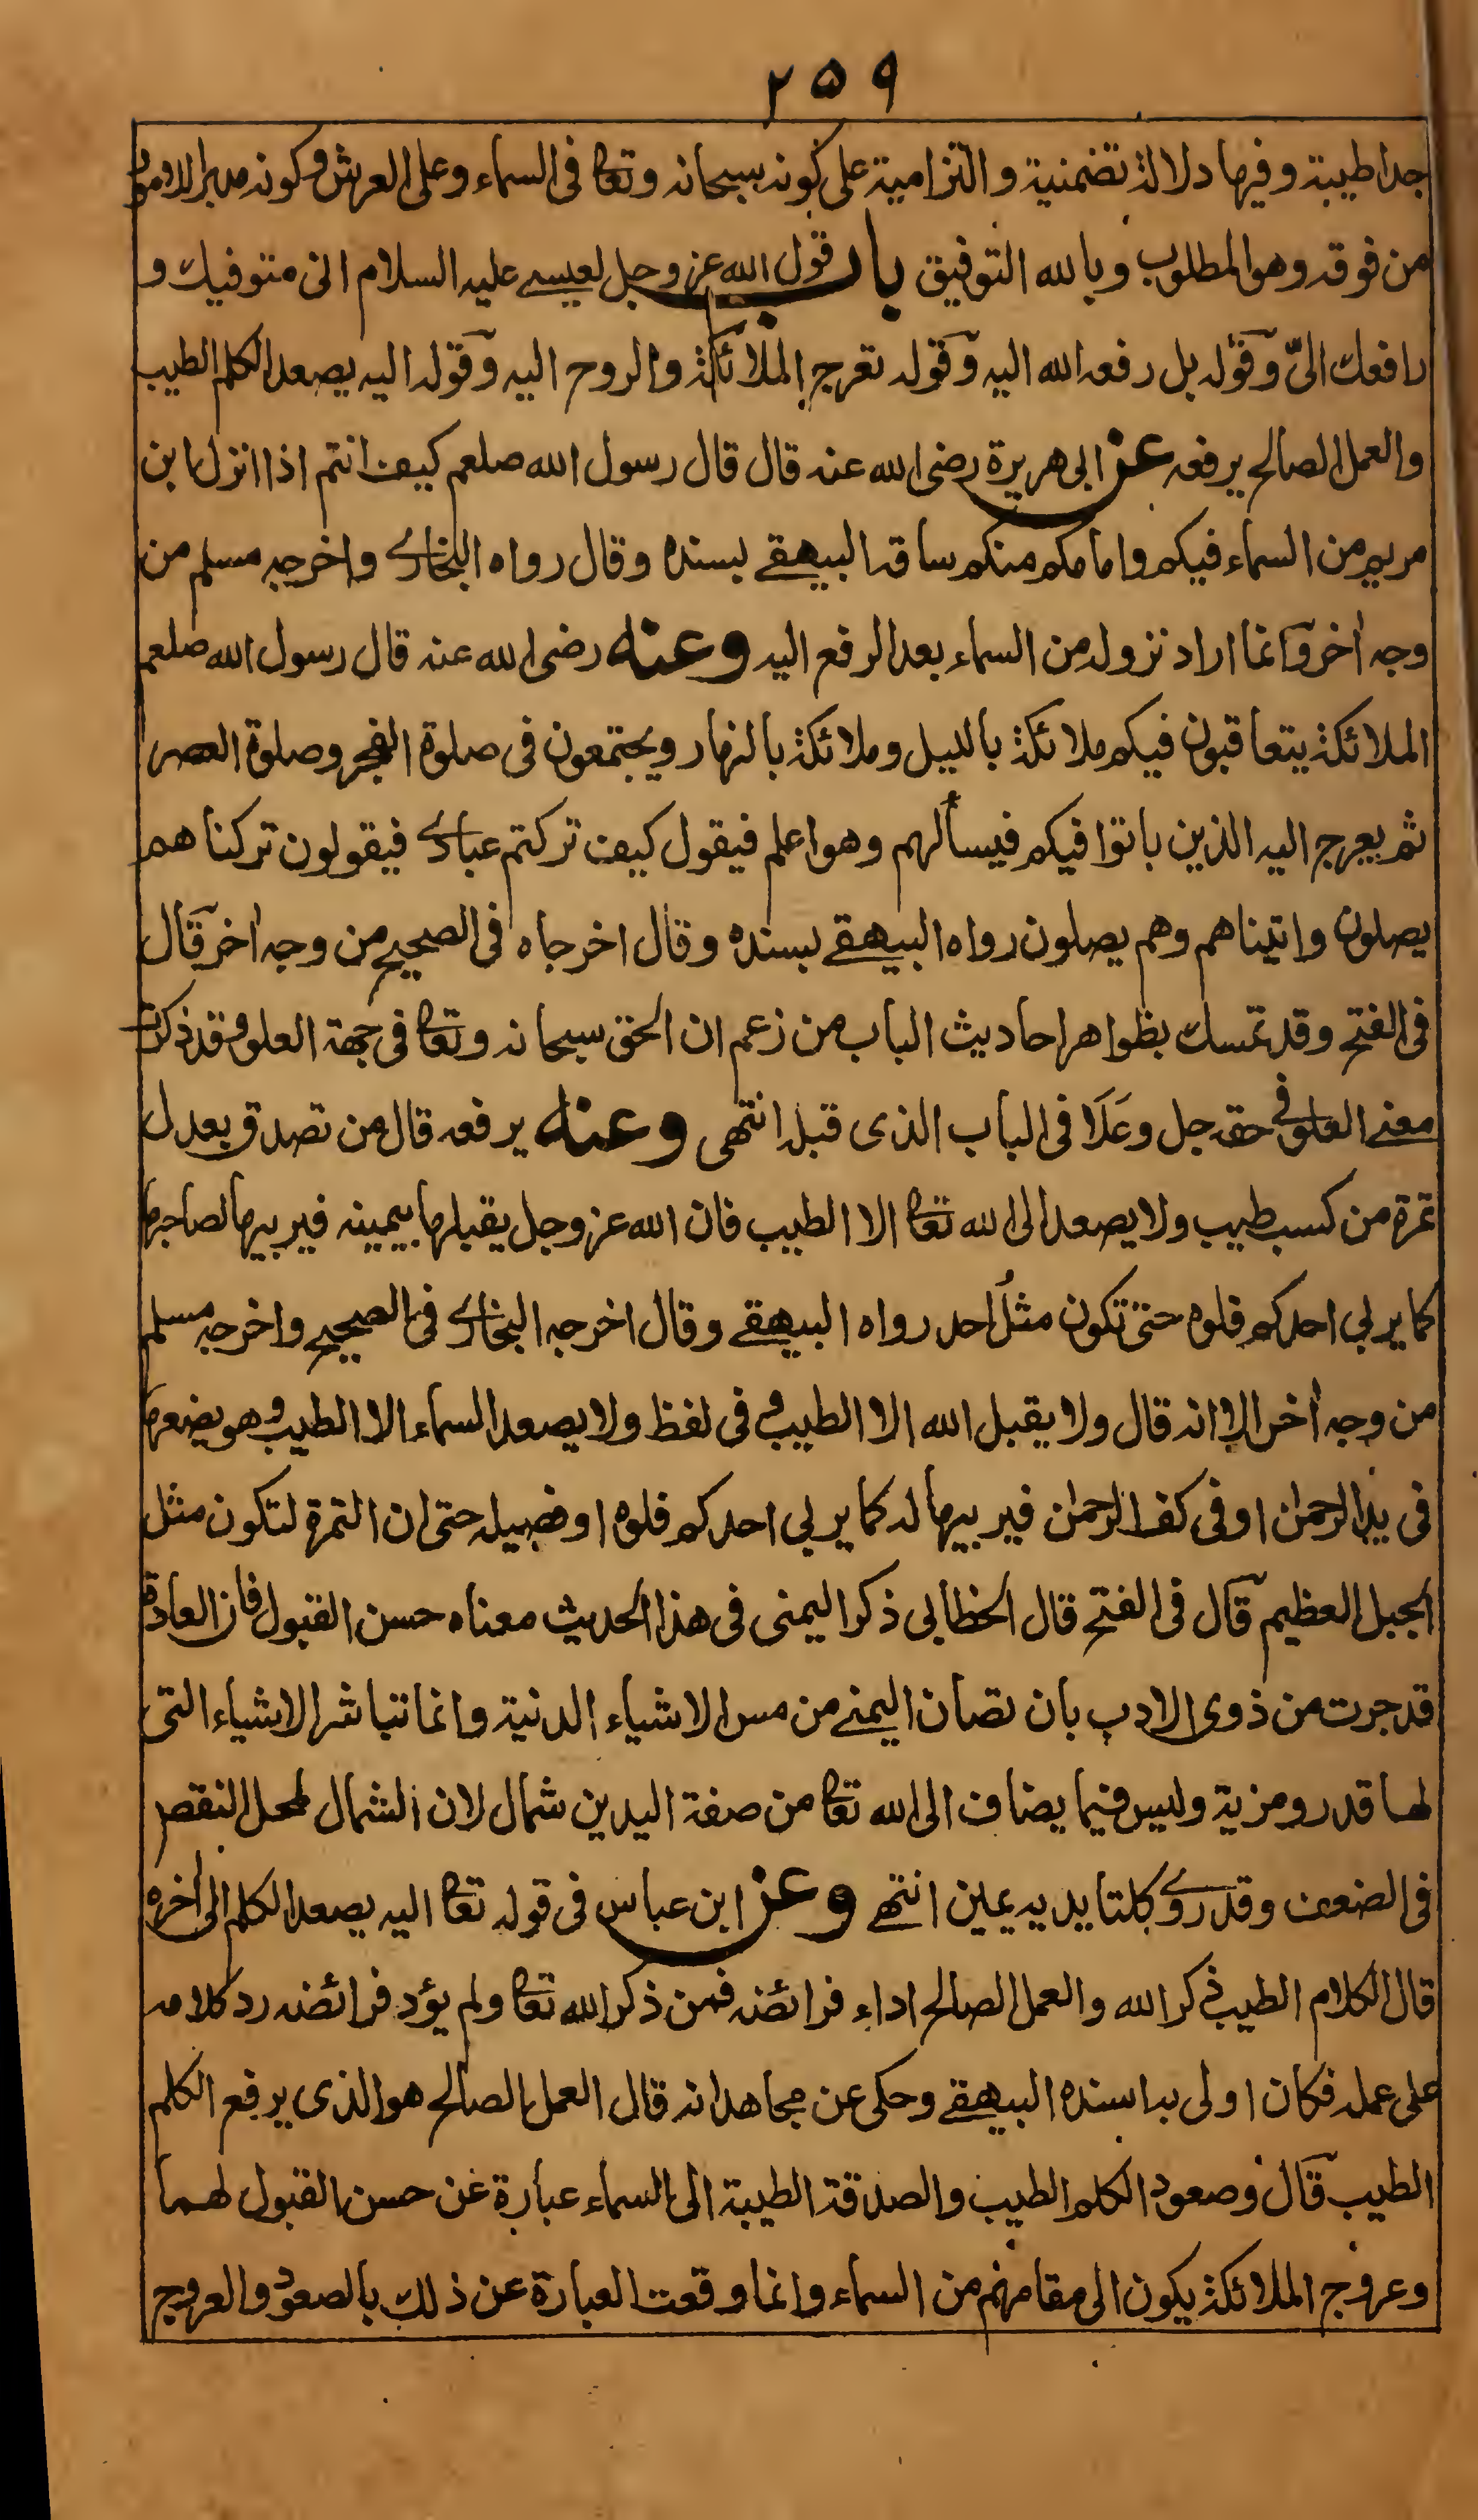 ٢٥٩
جدا طيبة وفيها دلالة تضمنية والتزامية على كونه سبحانه وتعا في السماء وعلى العرش وكونه مدبرا لامور
من فوقه وهو المطلوب وبالله التوفيق باب قول الله عز وجل لعيسے عليه السلام انى متوفيك و
رافعك الىّ وقوله بل رفعه الله اليه وقوله تعرج الملائكة والروح اليه وقوله اليه يصعد الكلم الطيب
والعمل الصالح يرفعه عن ابى هريرة رضى الله عنه قال قال رسول الله صلعم كيف انتم اذا انزل ابن
مريم من السماء فيكم وامامكم منكم ساقه البيهقے بسنده وقال رواه البخارى واخرجه مسلم من
وجه اٰخر وانما اراد نزوله من السماء بعد الرفع اليه وعنه رضى الله عنه قال رسول الله صلعم
الملائكة يتعاقبون فيكم ملائكة بالليل وملائكة بالنهار ويجتمعون فى صلوة الفجر وصلوة العصر
ثم يعرج اليه الذين باتوا فيكم فيسألهم وهو اعلم فيقول كيف تركتم عبادى فيقولون تركناهم
يصلون واتيناهم وهم يصلون رواه البيهقے بسنده وقال اخرجاه فى الصحيح من وجه اٰخر قال
فى الفتح وقد تمسك بظواهر احاديث الباب من زعم ان الحق سبحانه وتعا فى جهة العلو وقد ذكرت
معنے العلو فى حقه جل وعَلَا فى الباب الذى قبله انتهى وعنه يرفعه قال من تصدق بعدل
تمرة من كسب طيب ولا يصعد الى الله تعا الا الطيب فان الله عز وجل يقبلها بيمينه فيربيها لصاحبها
كما يربى احدكم فلوه حتى تكون مثلُ احد رواه البيهقے وقال اخرجه البخارى فى الصحيح واخرجه مسلم
من وجه اٰخر الا انه قال ولا يقبل الله الا الطيب وفى لفظ ولا يصعد السماء الا الطيب وهو يضعها
فى يد الرحمٰن او فى كف الرحمٰن فيربيها له كما يربى احدكم فلوه او فصيله حتى ان التمرة لتكون مثل
الجبل العظيم قال فى الفتح قال الخطابى ذكر اليمنى فى هذا الحديث معناه حسن القبول فان العادة
قد جرت من ذوى الادب بان تصان اليمنے من مس الاشياء الدنية وانما تباشر الاشياء التى
لها قدر ومزية وليس فيما يضاف الى الله تعا من صفة اليدين شمال لان الشمال لمحل النقص
فى الضعف وقد روى كلتا يديه يمين انتهے وعن ابن عباس فى قوله تعا اليه يصعد الكلم الى اٰخره
قال الكلام الطيب ذكر الله والعمل الصالح اداء فرائضه فمن ذكر الله تعا ولم يؤد فرائضه رد كلامه
على عمله فكان اولى به اسنده البيهقے وحكى عن مجاهد انه قال العمل الصالح هو الذى يرفع الكلم
الطيب قال وصعود الكلم الطيب والصدقة الطيبة الى السماء عبارة عن حسن القبول لهما
وعروج الملائكة يكون الى مقامهم من السماء وانما وقعت العبارة عن ذلك بالصعود والعروج